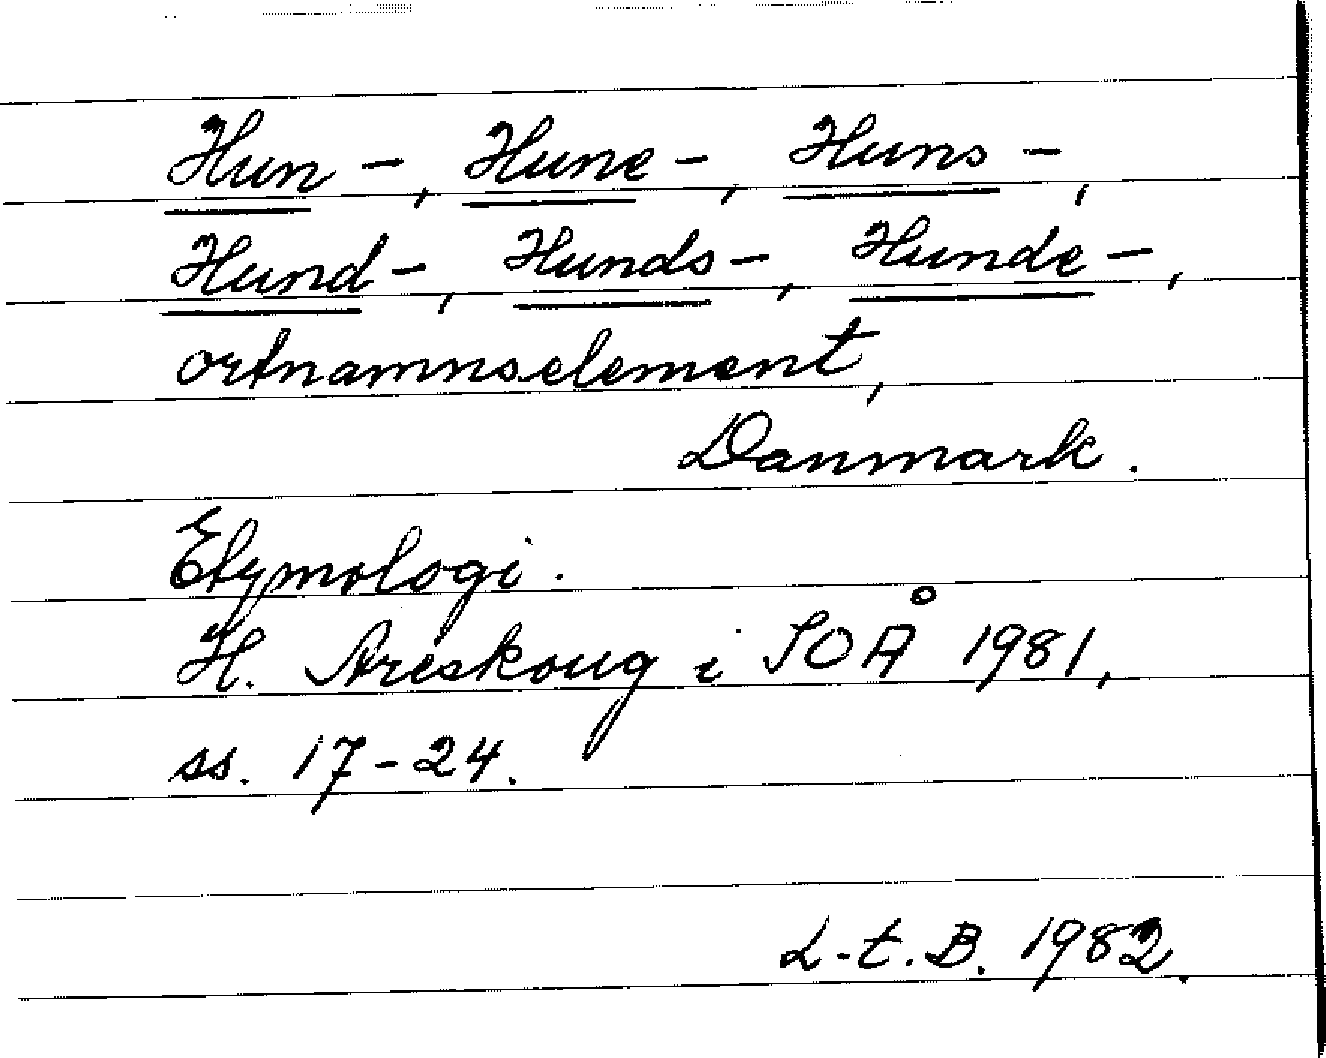 Hun-, Hune-, Huns-,
Hund-, Hunds-, Hunde-,
ortnamnselement,
Danmark.
Etymologi.
H. Areskoug i SOÅ 1981,
ss. 17-24.
L-t. B. 1982.